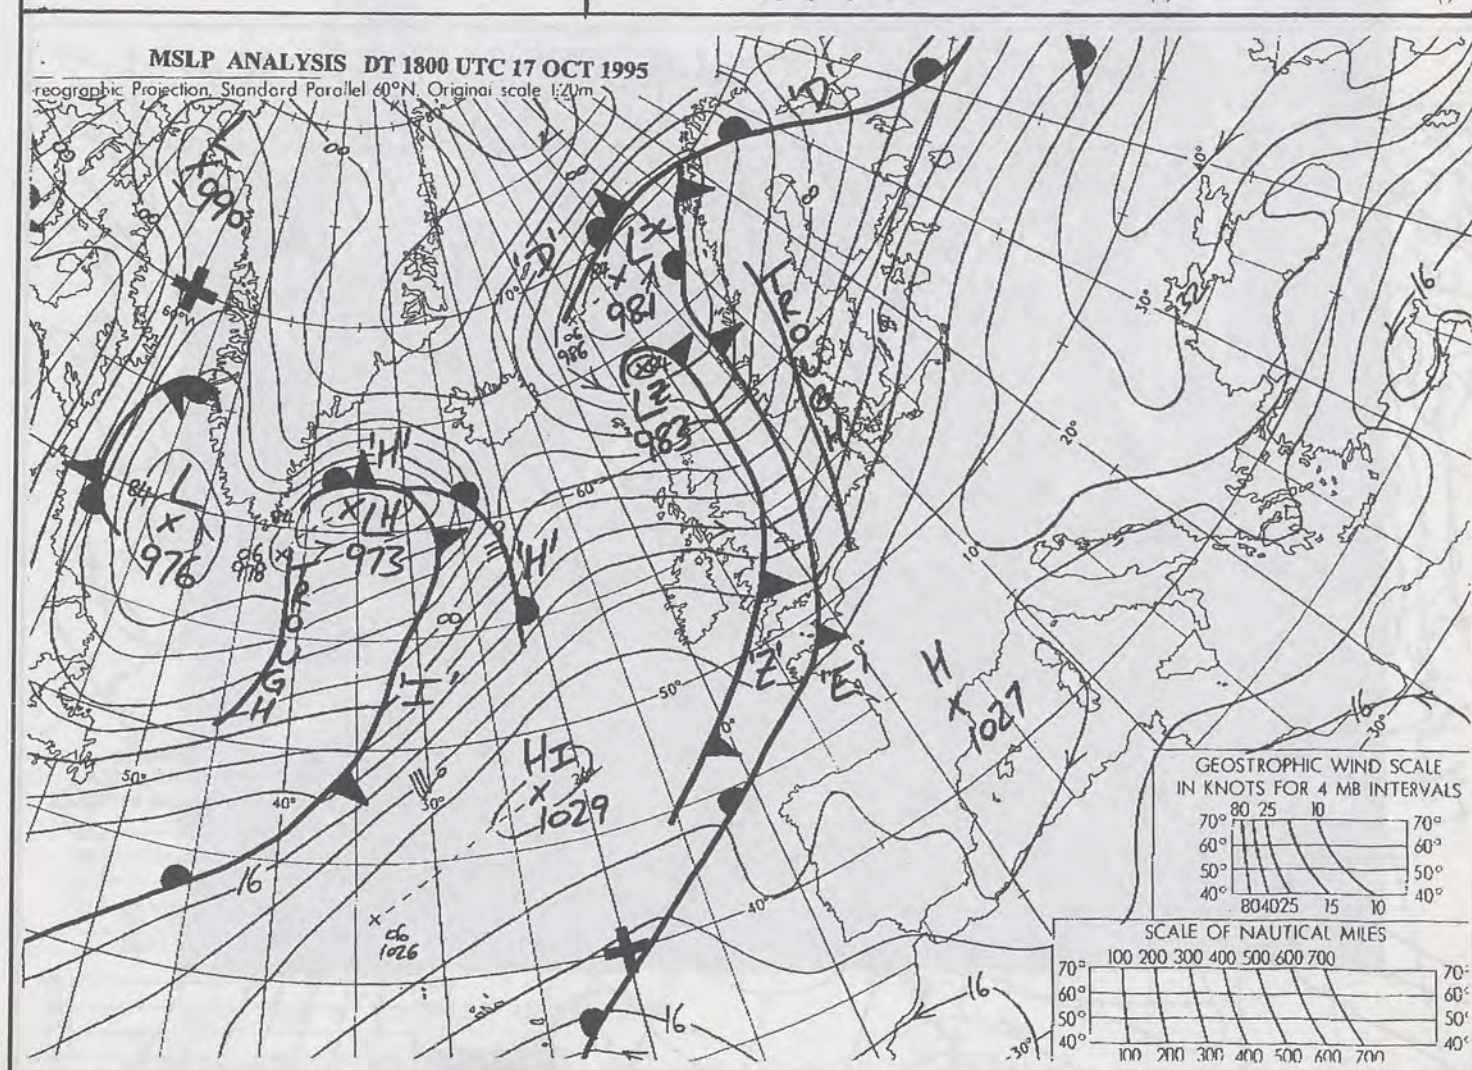 MSLP ANALYSIS DT 1800 UTC 17 OCT 1995
reographic Projection, Standard Parallel 60°N, Original scale 1:20m
L
990
'D'
'D'
LX
981
06
986
LZ
983
TROUGH
32
16
40°
30°
20°
10°
'H'
L
84
976
LH
973
06
978
TROUGH
'H'
'I'
70°
60°
50°
'Z'
'E'
0°
H
1027
16
30°
HI
1029
50°
40°
30°
16
06
1026
40°
16
16
30°
GEOSTROPHIC WIND SCALE
IN KNOTS FOR 4 MB INTERVALS
80 25 10
70° 70°
60° 60°
50° 50°
40° 40°
80 40 25 15 10
SCALE OF NAUTICAL MILES
100 200 300 400 500 600 700
70° 70°
60° 60°
50° 50°
40° 40°
100 200 300 400 500 600 700